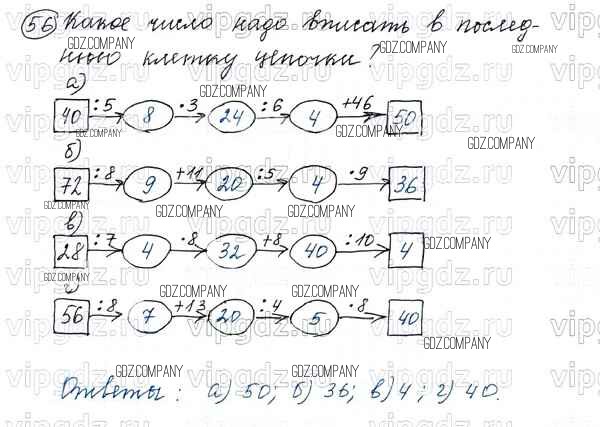 56 Какое число надо вписать в послед-
нюю клетку цепочки?
а)
40 :5 8 ·3 24 :6 4 +46 50
б)
72 :8 9 +11 20 :5 4 ·9 36
в)
28 :7 4 ·8 32 +8 40 :10 4
56 :8 7 +13 20 :4 5 ·8 40
Ответы: а) 50; б) 36; в) 4; г) 40.
vipgdz.ru
GDZ.COMPANY